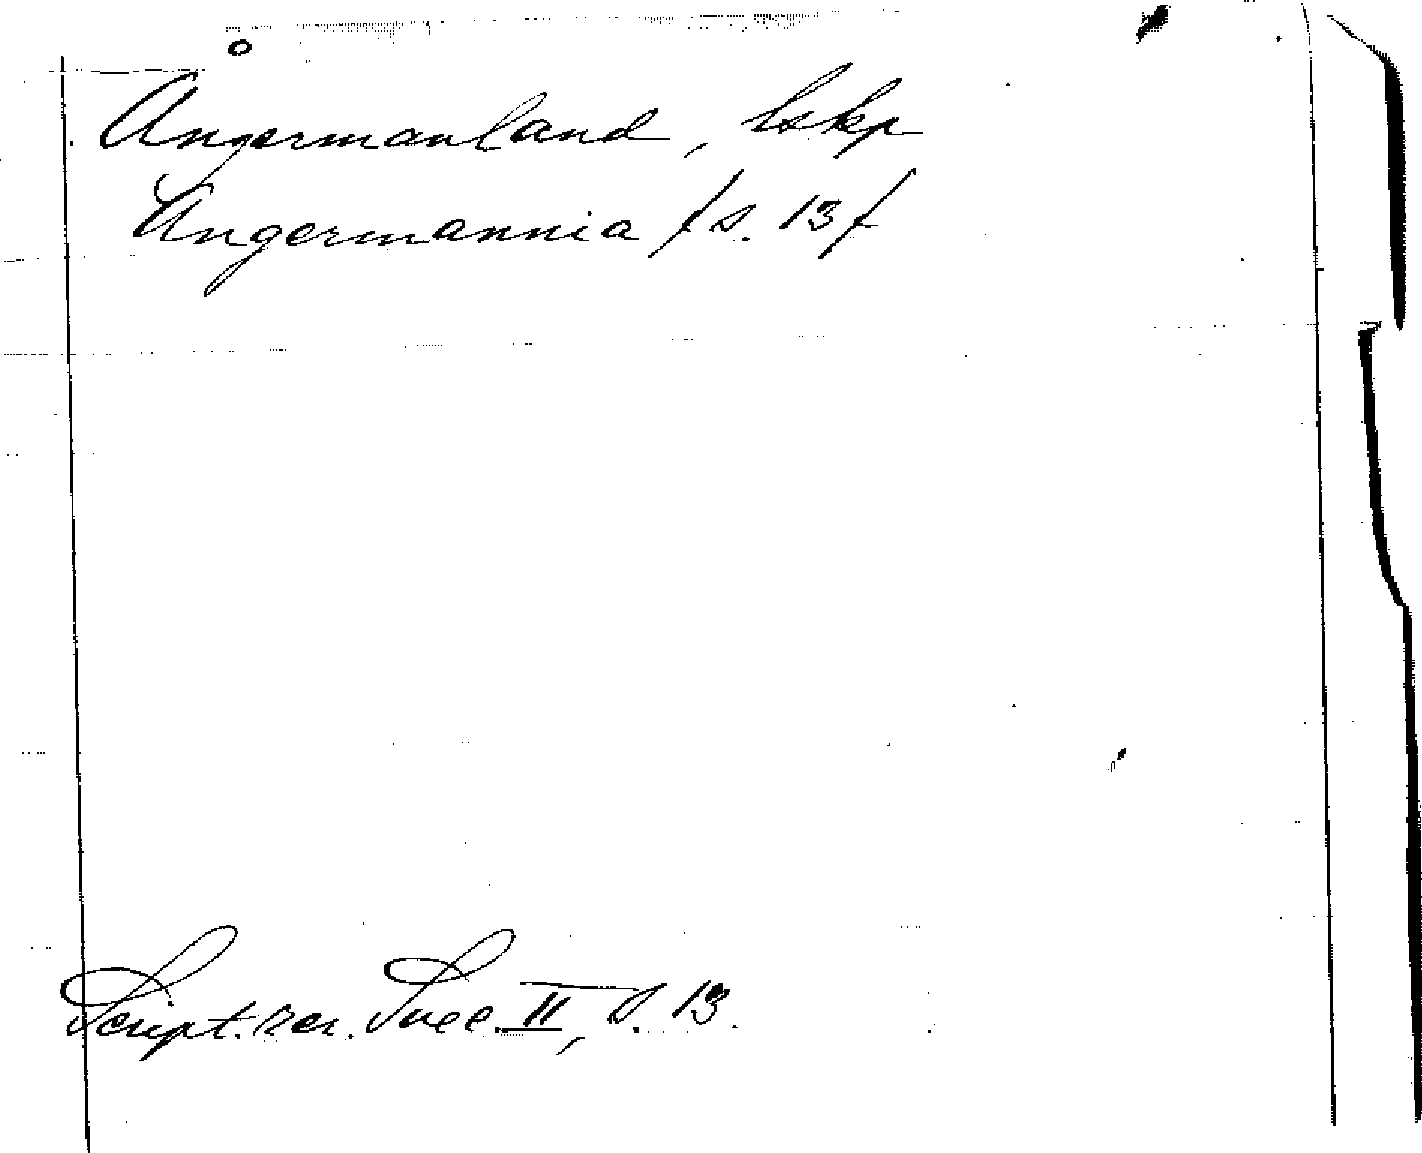 Ångermanland, lskp
Angermannia /s. 13/
Script. rer. Suec. II, s. 13.